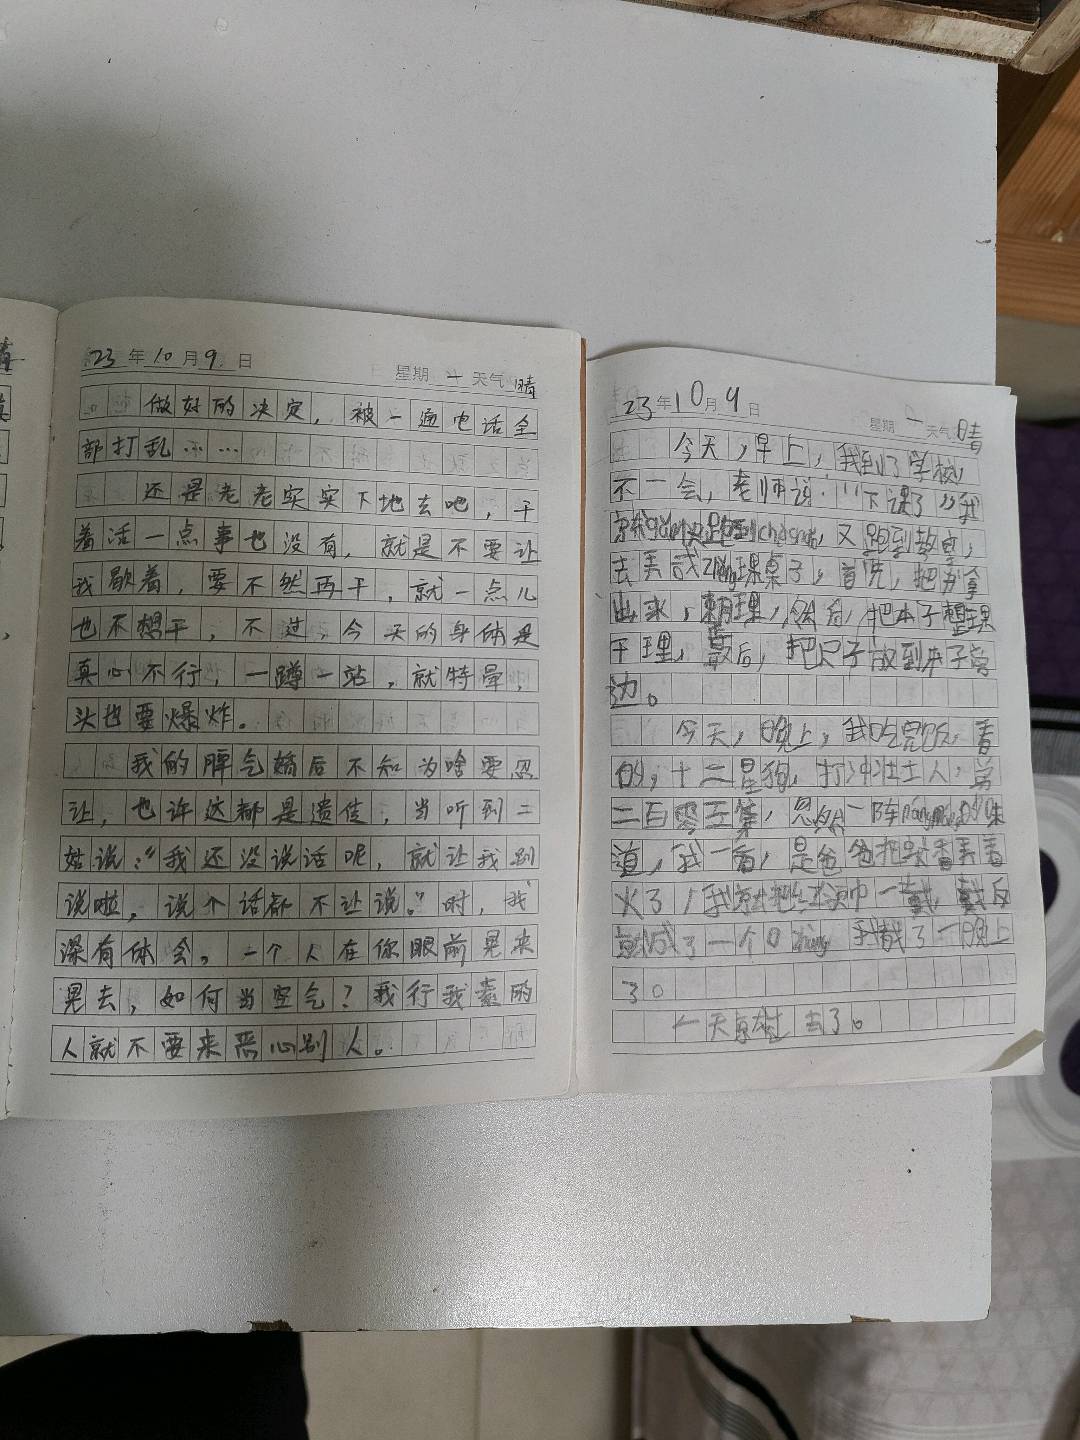 23年10月9日 星期一 天气 晴
做好的决定，被一通电话全
部打乱……
还是老老实实下地去吧，干
着活一点事也没有，就是不要让
我歇着，要不然再干，就一点儿
也不想干，不过，今天的身体是
真心不行，一蹲一站，就特晕，
头也要爆炸。
我的脾气婚后不知为啥要忍
让，也许这都是遗传，当听到二
姑说：“我还没说话呢，就让我别
说啦，说个话都不让说。”时，我
深有体会。一个人在你眼前晃来
晃去，如何当空气？我行我素的
人就不要来恶心别人。
23年10月9日 星期一 天气 晴
今天，早上，我到了学校，
不一会，老师说：“下课了”我
就 快跑到 ，又跑到教室，
去弄 理桌子，首先，把 拿
出来， 理，然后，把本子整理
干理，最后，把尺子放到本子旁
边。
今天，晚上，我吃完饭，看
的，十二星狗，打冲壮士人，第
二百零五集，忽然一阵 的味
道，我一看，是爸爸把 香弄着
火了，我就把红领巾一戴，戴反
就成了一个口zhang 我戴了一晚上
了。
一天就过去了。